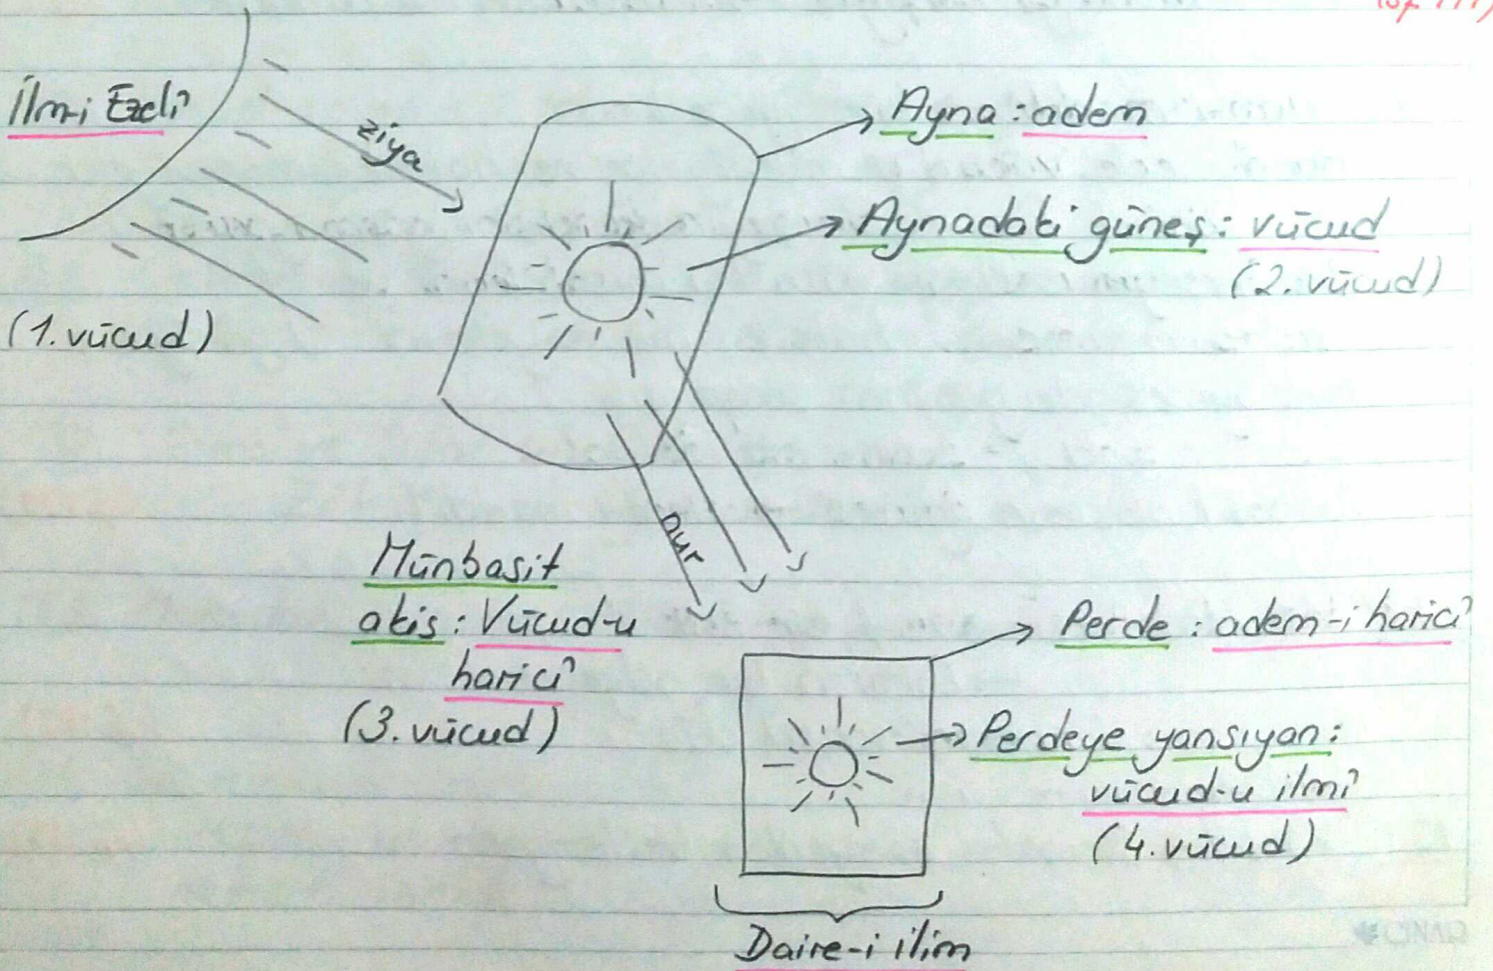 İlm-i Ezelî
(1. vücud)
ziya
Ayna : adem
Aynadaki güneş : vücud
(2. vücud)
nur
Münbasit
akis : Vücud-u
haricî
(3. vücud)
Perde : adem-i haricî
Perdeye yansıyan :
vücud-u ilmî
(4. vücud)
Daire-i ilim